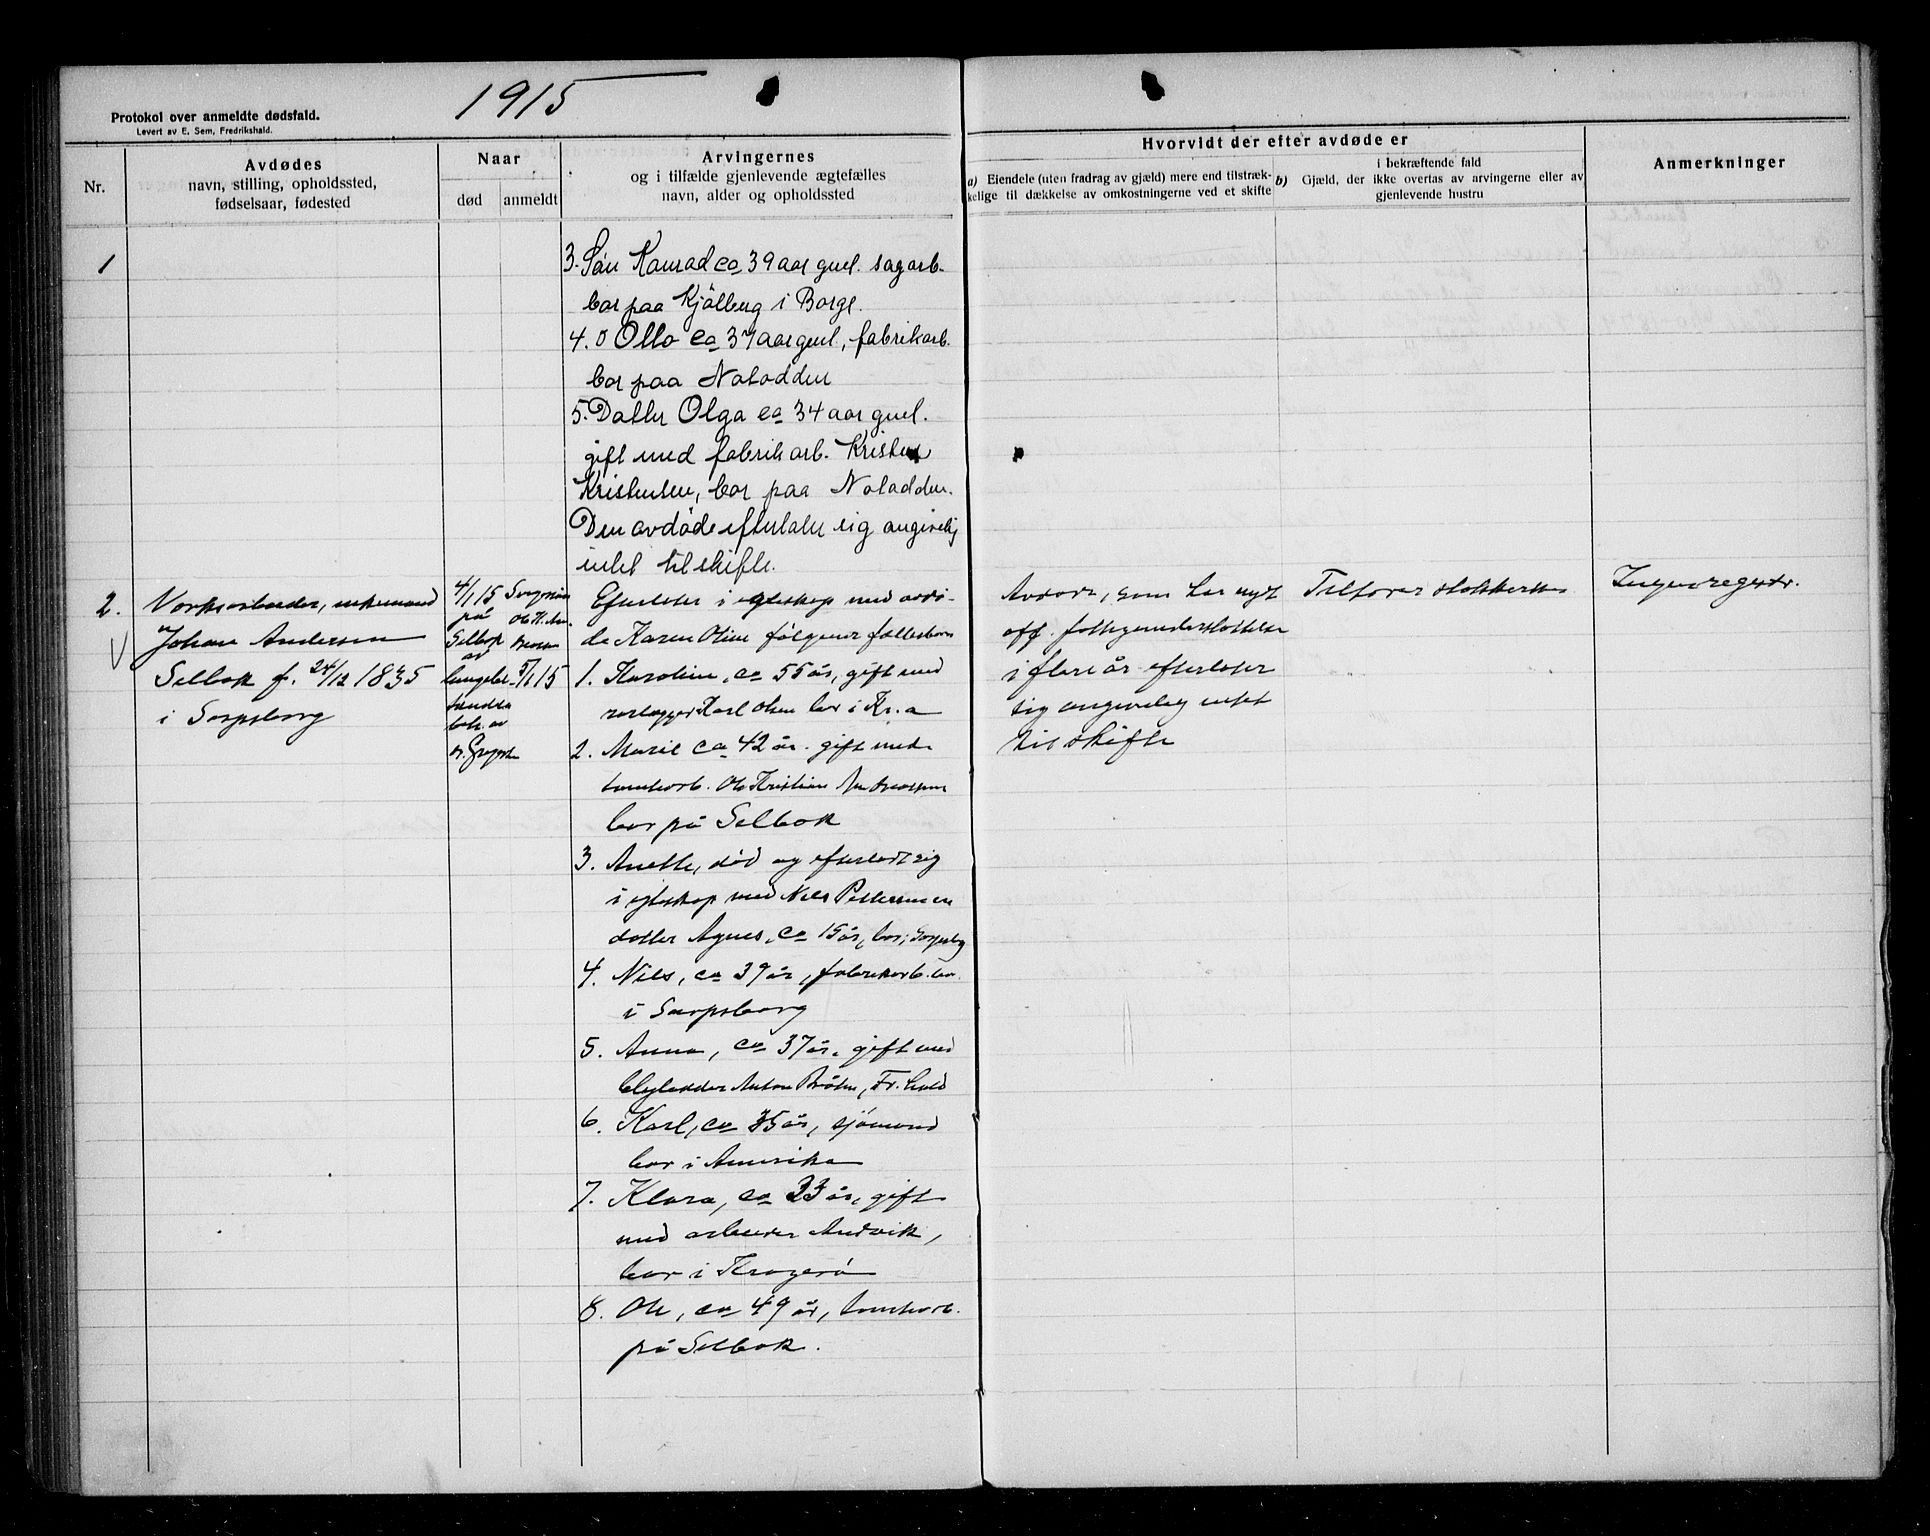 1915
Protokol over anmeldte dødsfald.
Levert av E. Sem, Fredrikshald.
Nr.
Avdødes
navn, stilling, opholdssted,
fødselsaar, fødested
Naar
død
anmeldt
Arvingernes
og i tilfælde gjenlevende ægtefælles
navn, alder og opholdssted
Hvorvidt der efter avdøde er
a) Eiendele (uten fradrag av gjæld) mere end tilstræk-
kelige til dækkelse av omkostningerne ved et skifte
i bekræftende fald
b) Gjæld, der ikke overtas av arvingerne eller av
gjenlevende hustru
Anmerkninger
1
3. Søn Konrad ca 39 aar gml. sagarb.
bor paa Kjølberg i Borge.
4. Otto ca 37 aar gml, fabrikarb.
bor paa Notodden
5. Datter Olga ca 34 aar gml.
gift med fabrikarb. Kristen
Kristensen, bor paa Notodden.
Den avdøde efterlater sig angivelig
intet til skifte.
2.
Verksarbeider, enkemand
Johan Andersen
Selbak f. 24/12 1835
i Sarpsborg
4/1 15
på
Selbak
av
lungebe-
tændelse
beh. av
dr.
5/1 15
Efterlater i egteskap med avdø-
de Karen Oline følgende fællesbarn
1. Karoline, ca 55 år, gift med
rørlegger Karl Olsen bor i Kr.a
2. Marie ca 42 år. gift med
tomtearb. Ole Kristian Andreassen
bor på Selbak
3. Anette, død og efterlatt sig
i egteskap med Nils Pettersen en
datter Agnes, ca 15 år, bor i Sarpsbg
4. Nils, ca 39 år, fabrikarb. bor
i Sarpsborg
5. Anna, ca 37 år, gift med
Anton Frhald
6. Karl, ca 35 år, sjømand
bor i Amerika
7. Klara, ca 33 år, gift
med arbeider Andvik,
bor i Kragerø
8. Ole, ca 49 år, tomtearb.
på Selbak.
Avdøde, som har nydt
off. fattigunderstøttelse
i flere år efterlater
sig angivelig intet
til skifte
Tilfører